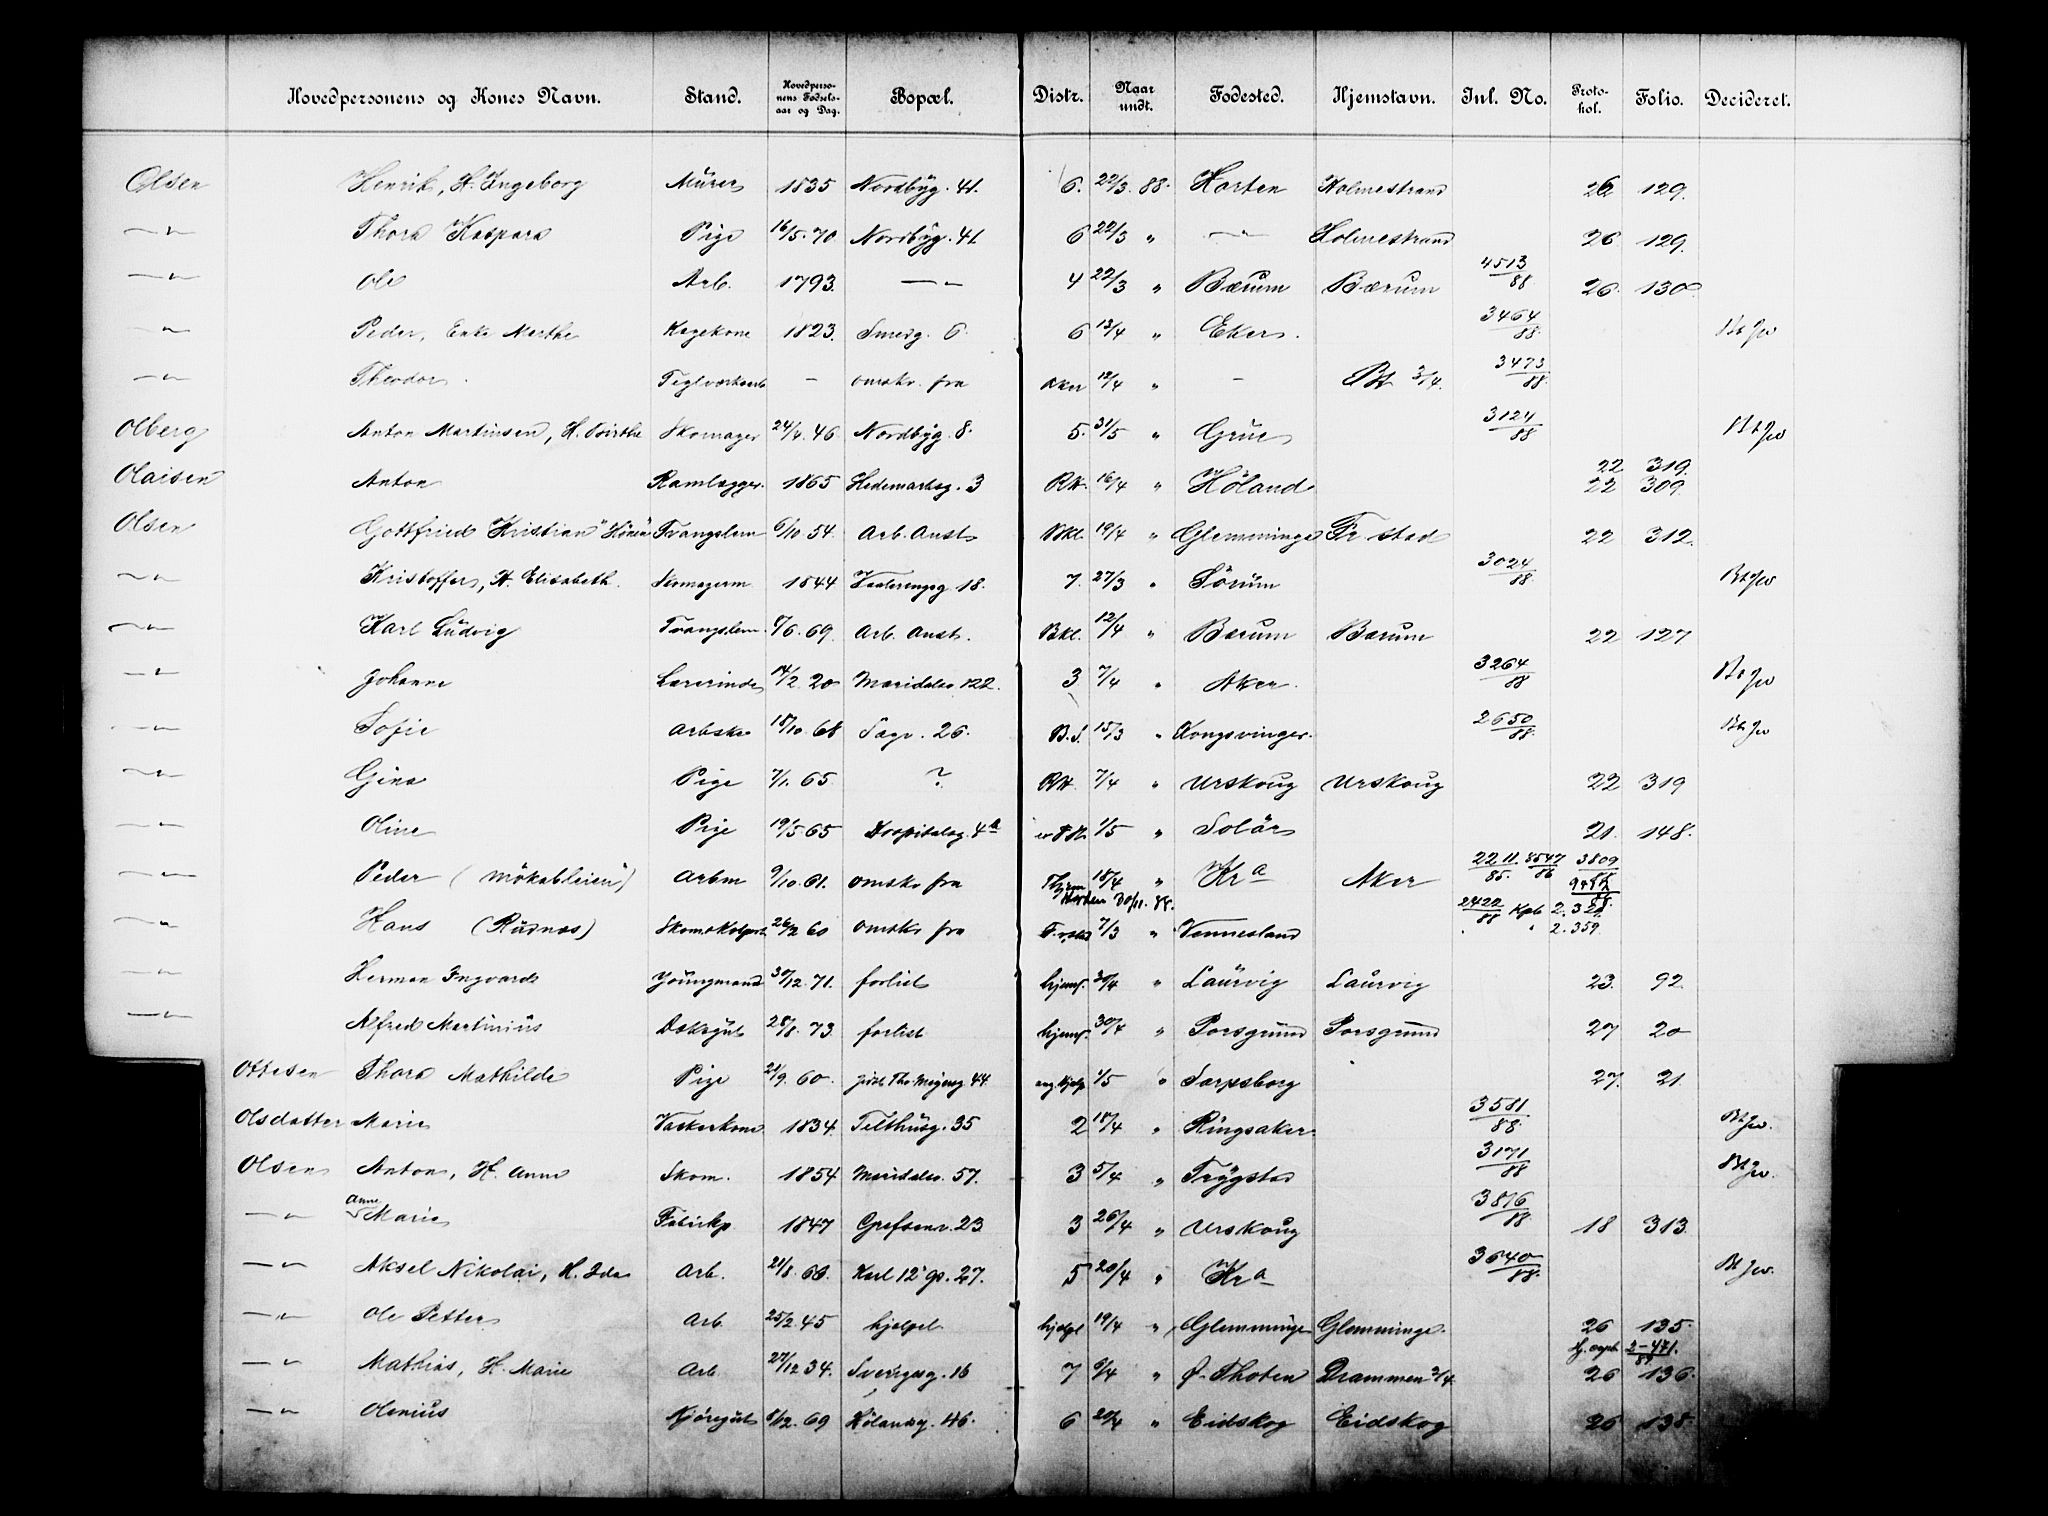 Hovedpersonens og Kones Navn. Stand. Hovedpersonens Fødselsaar og Dag. Bopæl. Distr. Naar undt. Fødested. Hjemstavn. Inl. No. Protokol. Folio. Decideret.
Olsen Henrik, H. Ingeborg Murer 1835 Nordbyg. 41. 6. 22/3 88. Horten Holmestrand 26 129.
—"— Thora Kaspara Pige 16/5 70 Nordbyg. 41 6 22/3 " —"— Holmestrand 26 129.
—"— Ole Arb. 1793. —"— 4 22/3 " Bærum Bærum 4513/88 26 130
—"— Peder, Enke Marthe Hagekone 1823. Smedg. 6. 6 13/4 " Eker. 3464/88 Bt Jw
—"— Theodor Teglværksarb — omskr. fra Aker 12/4 " — Bt 3/4. 3473/88
Olberg Anton Martinsen, H. Birthe Skomager 24/4 46 Nordbyg. 8. 5. 31/5 " Grue 3124/88 Bt Jw
Olaisen Anton Ramlægger. 1865 Hedemarksg. 3 RH. 16/4 " Höland 22 319. 22 309.
Olsen Gottfried Kristian Tvangslem 6/10 54. Arb. Anst. Bkl. 19/4 " Glemminge Fr stad 22 312.
—"— Kristoffer, H. Elisabeth. Skomagerm. 1844 Vaalerengsg 18. 7. 27/3 " Sörum 3024/88 Bt Jw
—"— Karl Ludvig Tvangslem 6. 69. Arb. Anst. Bkl. 12/4 " Bærum Bærum 22 127
—"— Johanne Lærerinde 14/2 20 Maridalsv 122. 3 7/4 " Aker. 3264/88 Bt Jw
—"— Sofie Arbske 18/10 68 Sagv. 26. B.S. 15/3 " Kongsvinger. 2650/88 Bt Jw
—"— Gina Pige 7/1. 65 ? RH. 7/4 " Urskoug Urskoug 22 319
—"— Oline Pige 19/5 65 Hospitalsg. 4a 1/5 " Solör 21. 148.
—"— Peder (Mökableien) Arbm 9/10. 61. omskr fra Hjem 18/4 " Kra Aker 2211/85. 8547/86 3809/88
Horten 30/11. 88.
—"— Hans (Rusnæs) 26/2 60 omskr fra 7/3 " Vennesland 2422/88 Kpb 2. 320. " 2. 359.
—"— Herman Ingvard Youngmand 30/12. 71. forlist hjemf. 30/4 " Laurvig Laurvig 23. 92.
—"— Alfred Martinius Doksgut 28/8. 73. forlist hjemf. 30/4 " Porsgrund Porsgrund 27 20
Ottesen Thora Mathilde Pige 21/9. 60. Th. Meyersg 44. 1/5 " Sarpsborg 27. 21.
Olsdatter Marie Vaskekone 1834. Telthusg. 35 2 18/4 " Ringsaker. 3581/88. Bt Jw.
Olsen Anton, H. Anne Skom. 1854 Maridalsv. 57. 3 5/4 " Trygstad 3171/88 Bt Jw.
—"— Anne Marie Fabrikp 1847 Grefsenv. 23 3 26/4 " Urskoug 3816/88 18 313.
—"— Aksel Nikolai, H. Ida Arb. 21/8. 66. Karl 12' gt. 27. 5 20/4 " Kra 3640/88. Bt Jw.
—"— Ole Petter Arb. 25/2 45 hjelpel hjelpl 19/4 " Glemminge Glemminge. 26 135.
2-471.
—"— Mathias, H. Marie Arb. 27/12 34. Sverigesg. 16 7 6/4 " Ø. Thoten Drammen 3/4. 26 136.
—"— Olenius Kjöregut 8/12. 69 Hölandsg. 46. 6 20/4 " Eidskog Eidskog 26 138.